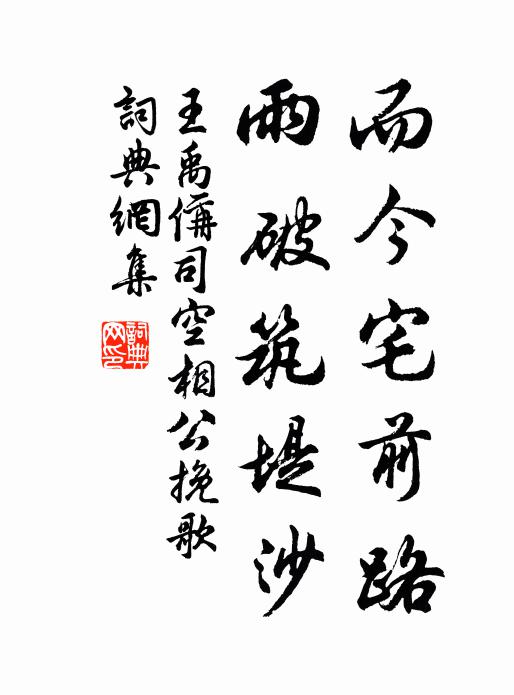 而今宅前路
雨破筑堤沙
王禹偁司空相公挽歌
詞典網集
詞典網印